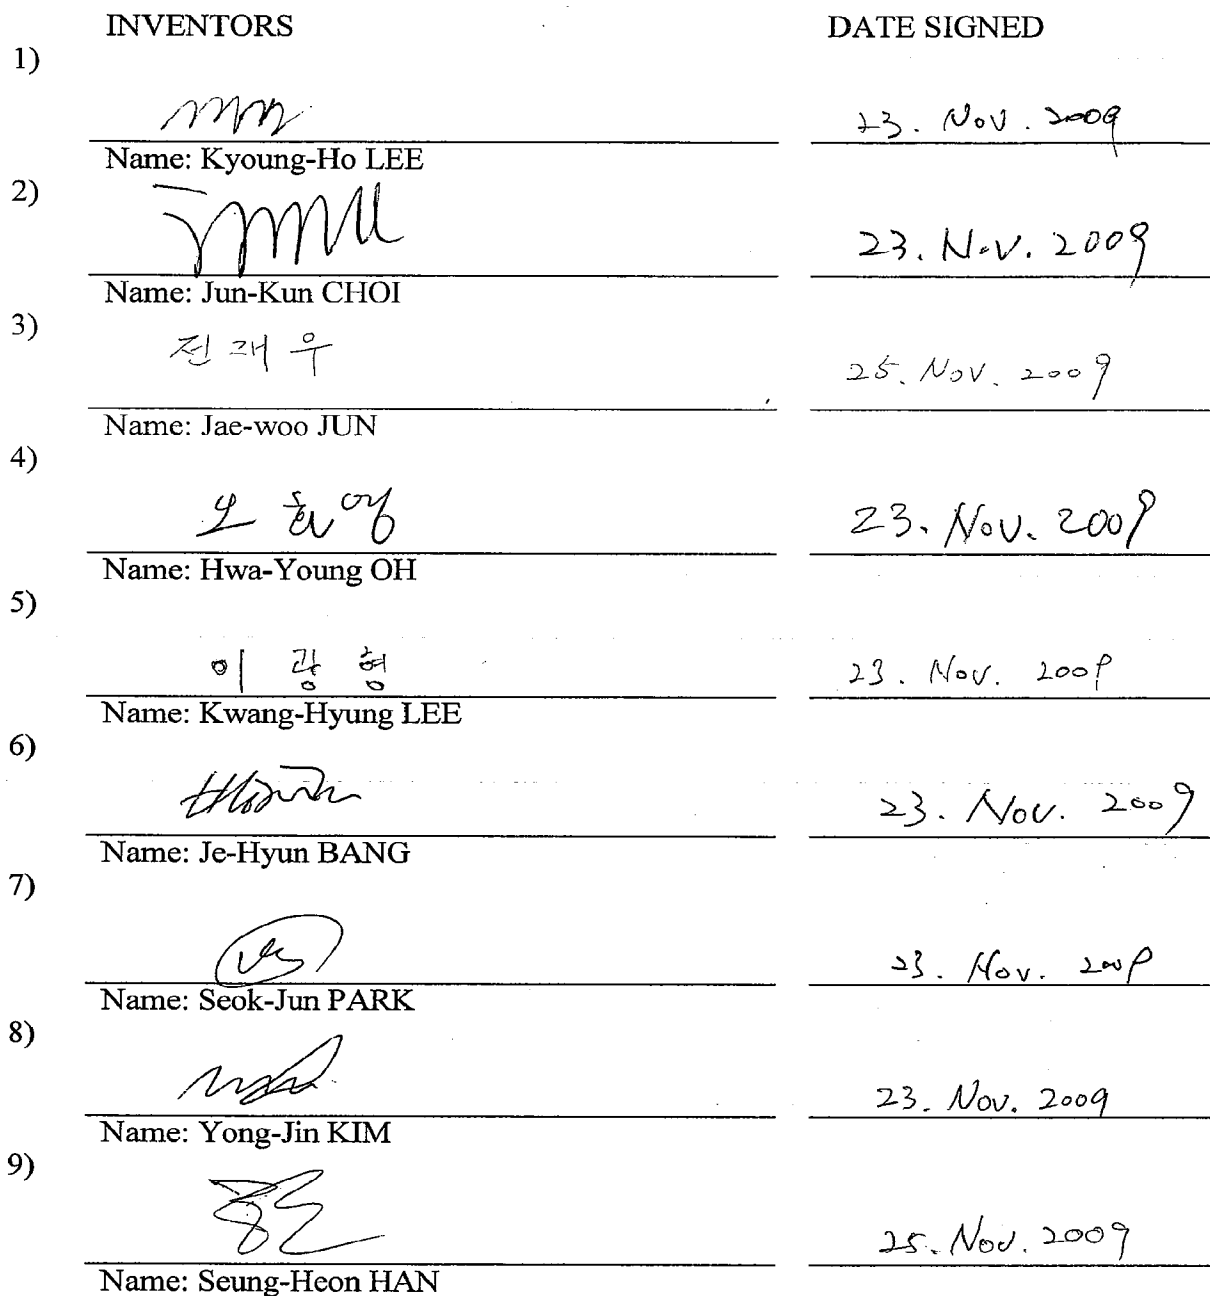 INVENTORS DATE SIGNED
1)
23. Nov. 2009
Name: Kyoung-Ho LEE
2)
23. Nov. 2009
Name: Jun-Kun CHOI
3)
전재우 25. Nov. 2009
Name: Jae-woo JUN
4)
오화영 23. Nov. 2009
Name: Hwa-Young OH
5)
이광형 23. Nov. 2009
Name: Kwang-Hyung LEE
6)
23. Nov. 2009
Name: Je-Hyun BANG
7)
23. Nov. 2009
Name: Seok-Jun PARK
8)
23. Nov. 2009
Name: Yong-Jin KIM
9)
25. Nov. 2009
Name: Seung-Heon HAN